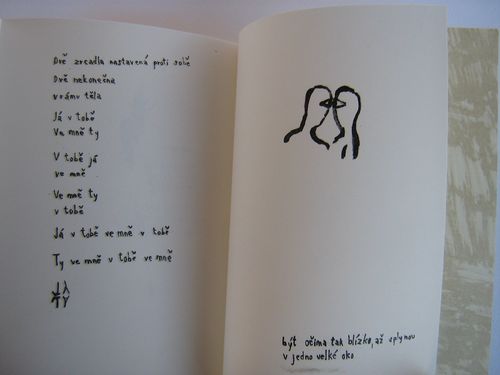 Dvě zrcadla nastavená proti sobě
Dvě nekonečna
v rámu těla
Já v tobě
Ve mně ty
V tobě já
ve mně
Ve mně ty
v tobě
Já v tobě ve mně v tobě
Ty ve mně v tobě ve mně
JÁ
TY
být očima tak blízko, až splynou
v jedno velké oko